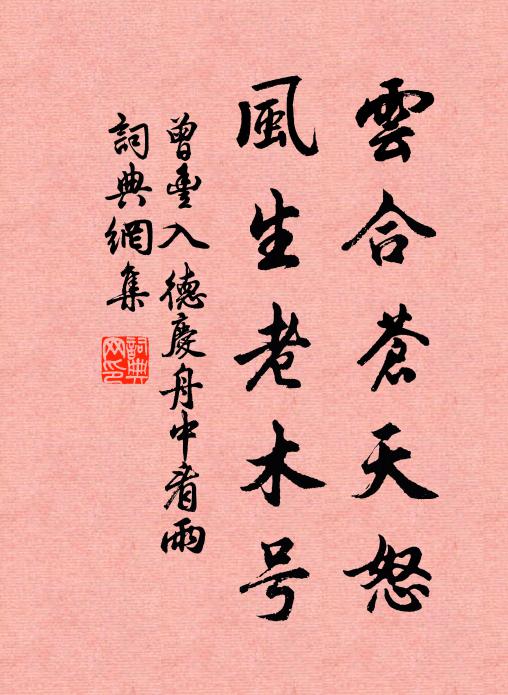 雲合蒼天怒
風生老木号
曾豐入德慶舟中看雨
詞典網集
詞典网印